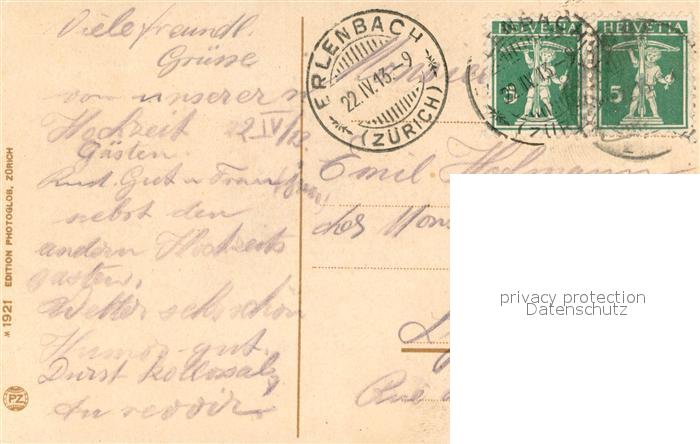 Viele freundl.
Grüsse
von unserer
Hochzeit 22 IV/13
Gästen.
Rud. Gut u Frau
nebst den
andern Hochzeits
gästen.
Wetter sehr schön
Humor gut.
Durst kollossal
Au revoir
№ 1921 EDITION PHOTOGLOB, ZÜRICH
PZ
ERLENBACH
22.IV.13–9
(ZÜRICH)
HELVETIA
HELVETIA
5
Monsieur
Emil Hofmann
chez Mons
Rue
privacy protection
Datenschutz